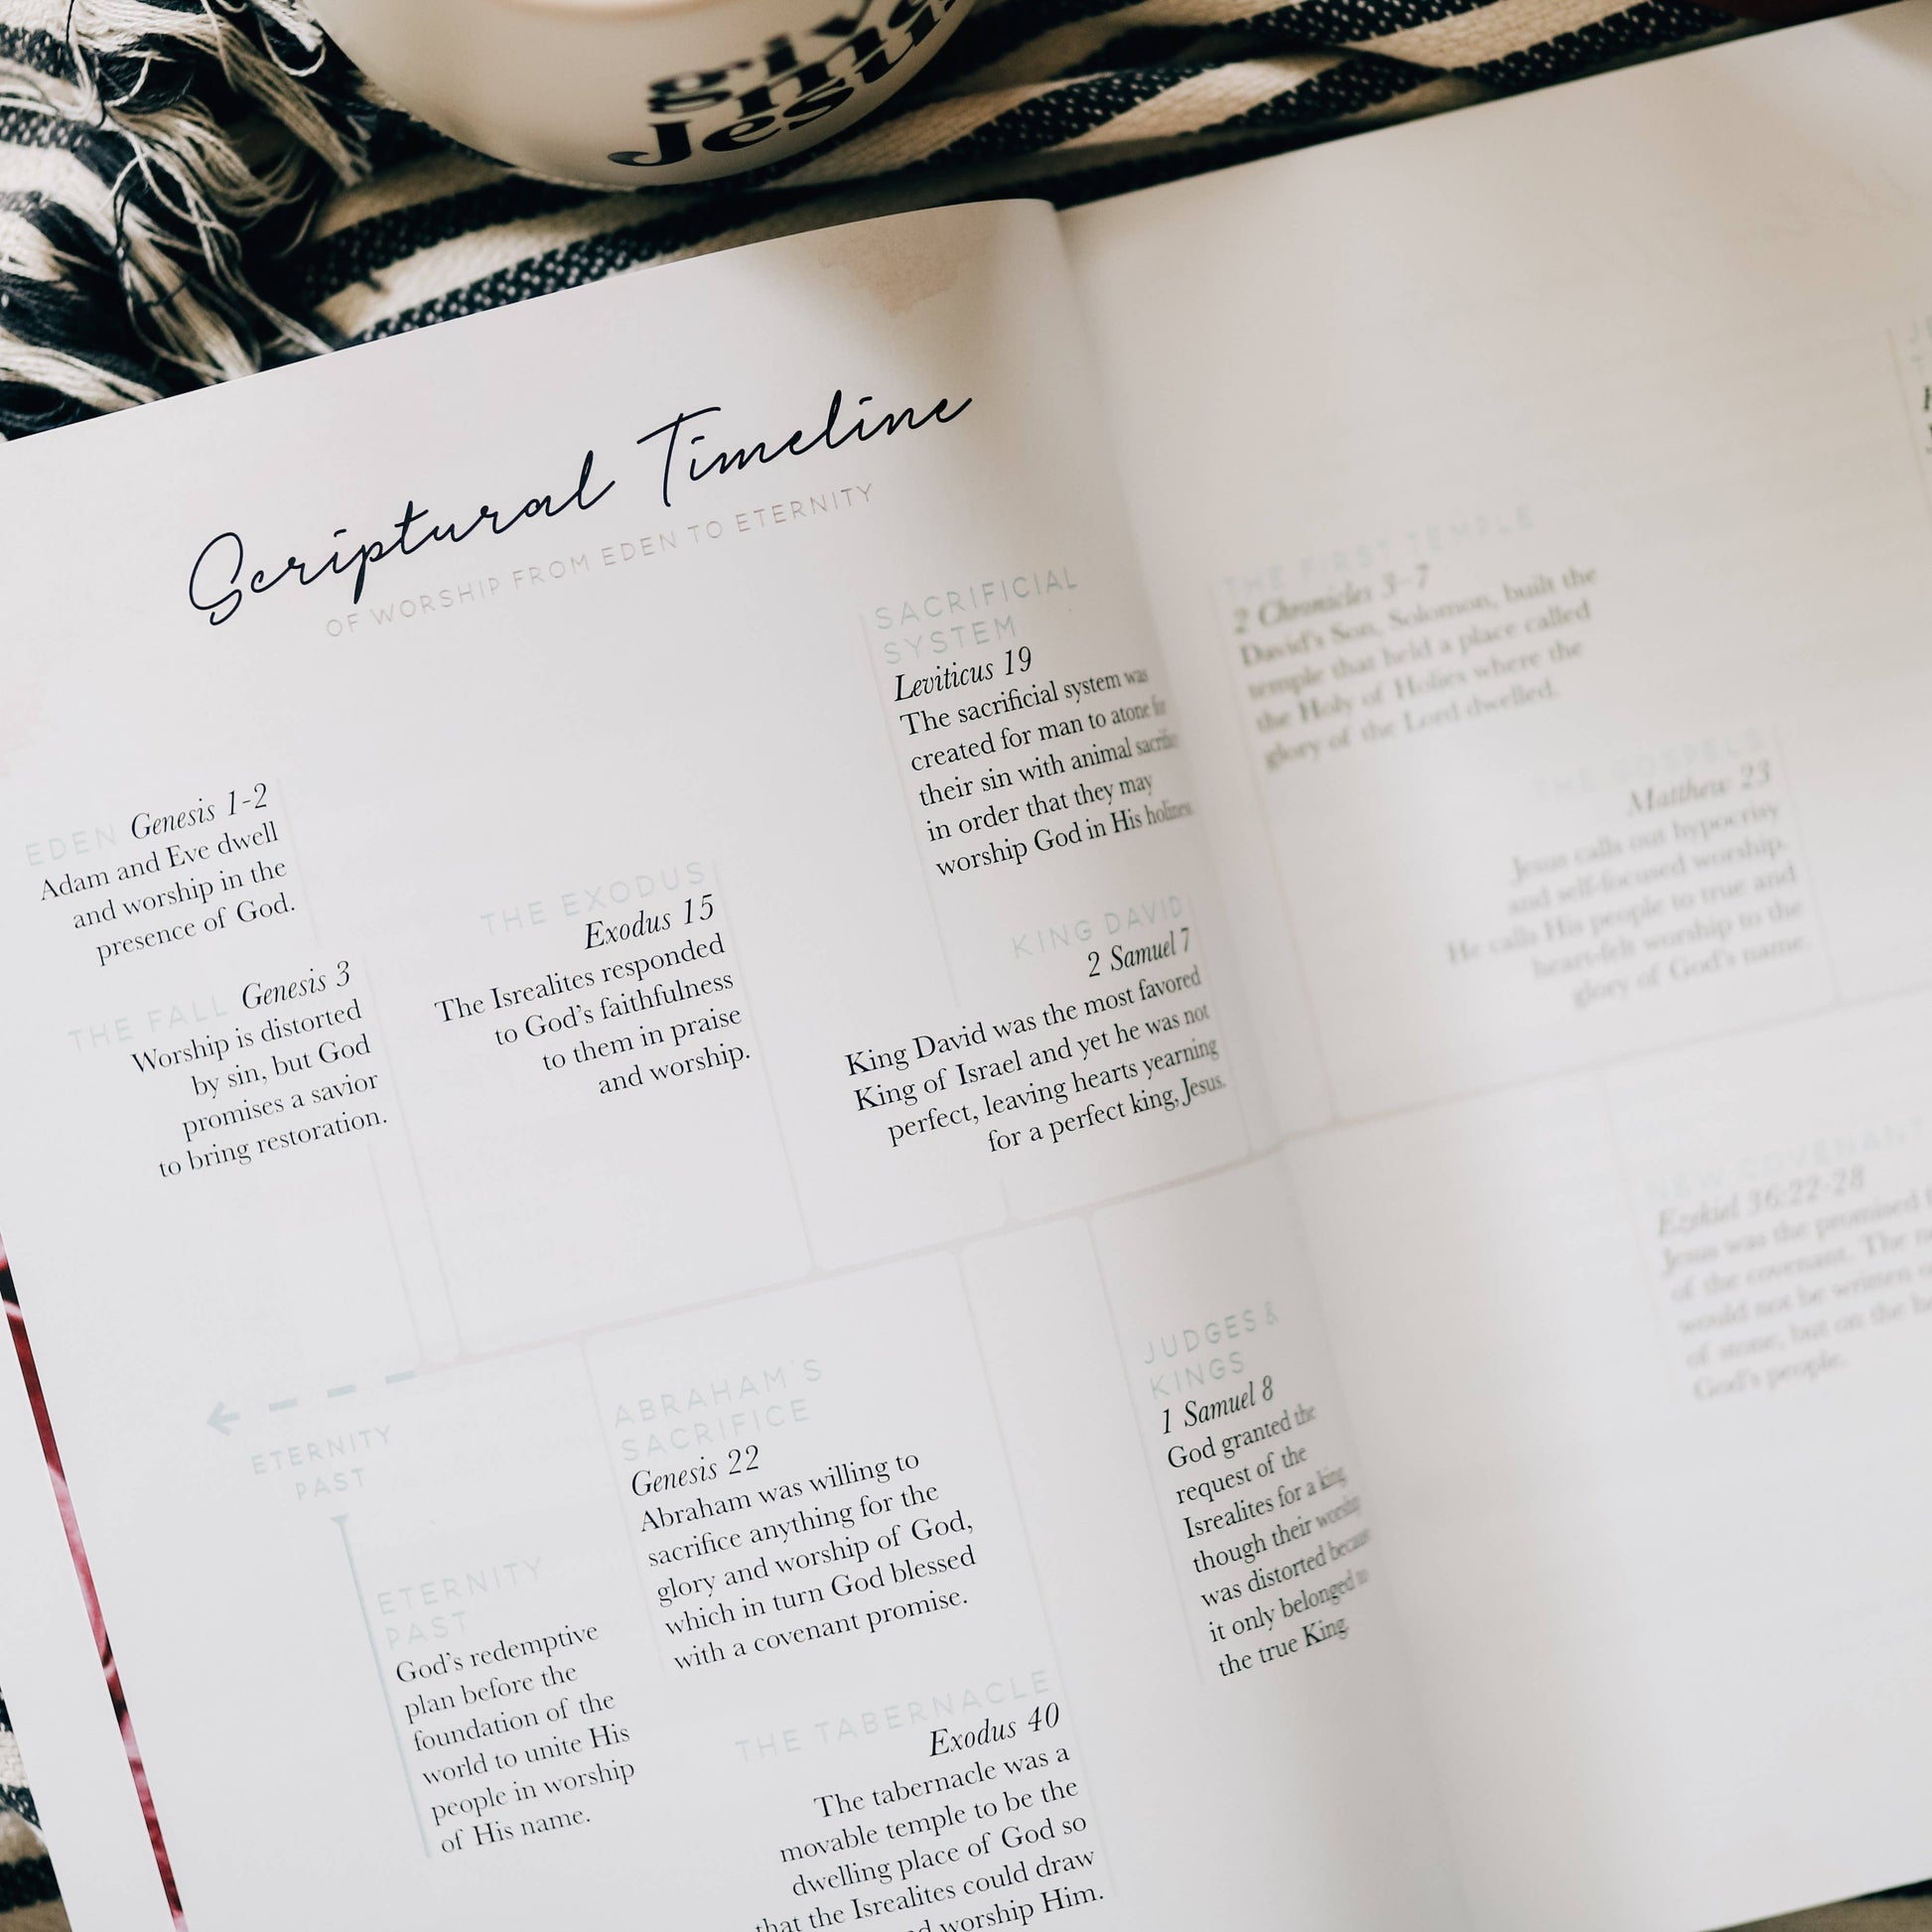 give
me
Jesus
Scriptural Timeline
OF WORSHIP FROM EDEN TO ETERNITY
EDEN Genesis 1-2
Adam and Eve dwell
and worship in the
presence of God.
THE FALL Genesis 3
Worship is distorted
by sin, but God
promises a savior
to bring restoration.
THE EXODUS
Exodus 15
The Isrealites responded
to God's faithfulness
to them in praise
and worship.
SACRIFICIAL
SYSTEM
Leviticus 19
The sacrificial system was
created for man to atone for
their sin with animal
in order that they may
worship God in His holiness.
KING DAVID
2 Samuel 7
King David was the most favored
King of Israel and yet he was not
perfect, leaving hearts yearning
for a perfect king, Jesus.
ETERNITY
PAST
ETERNITY
PAST
God's redemptive
plan before the
foundation of the
world to unite His
people in worship
of His name.
ABRAHAM'S
SACRIFICE
Genesis 22
Abraham was willing to
sacrifice anything for the
glory and worship of God,
which in turn God blessed
with a covenant promise.
THE TABERNACLE
Exodus 40
The tabernacle was a
movable temple to be the
dwelling place of God so
that the Isrealites could draw
worship Him.
JUDGES &
KINGS
1 Samuel 8
God granted the
request of the
Isrealites for a king,
though their worship
was distorted because
it only belonged to
the true King.
THE FIRST TEMPLE
2 Chronicles 3-7
David's Son, Solomon, built the
temple that held a place called
the Holy of Holies where the
glory of the Lord dwelled.
THE GOSPELS
Matthew 23
Jesus calls out hypocrisy
and self-focused worship.
He calls His people to true and
heart-felt worship to the
glory of God's name.
NEW COVENANT
Ezekiel 36:22-28
Jesus was the promised
of the covenant. The
would not be written
of stone, but on the
God's people.